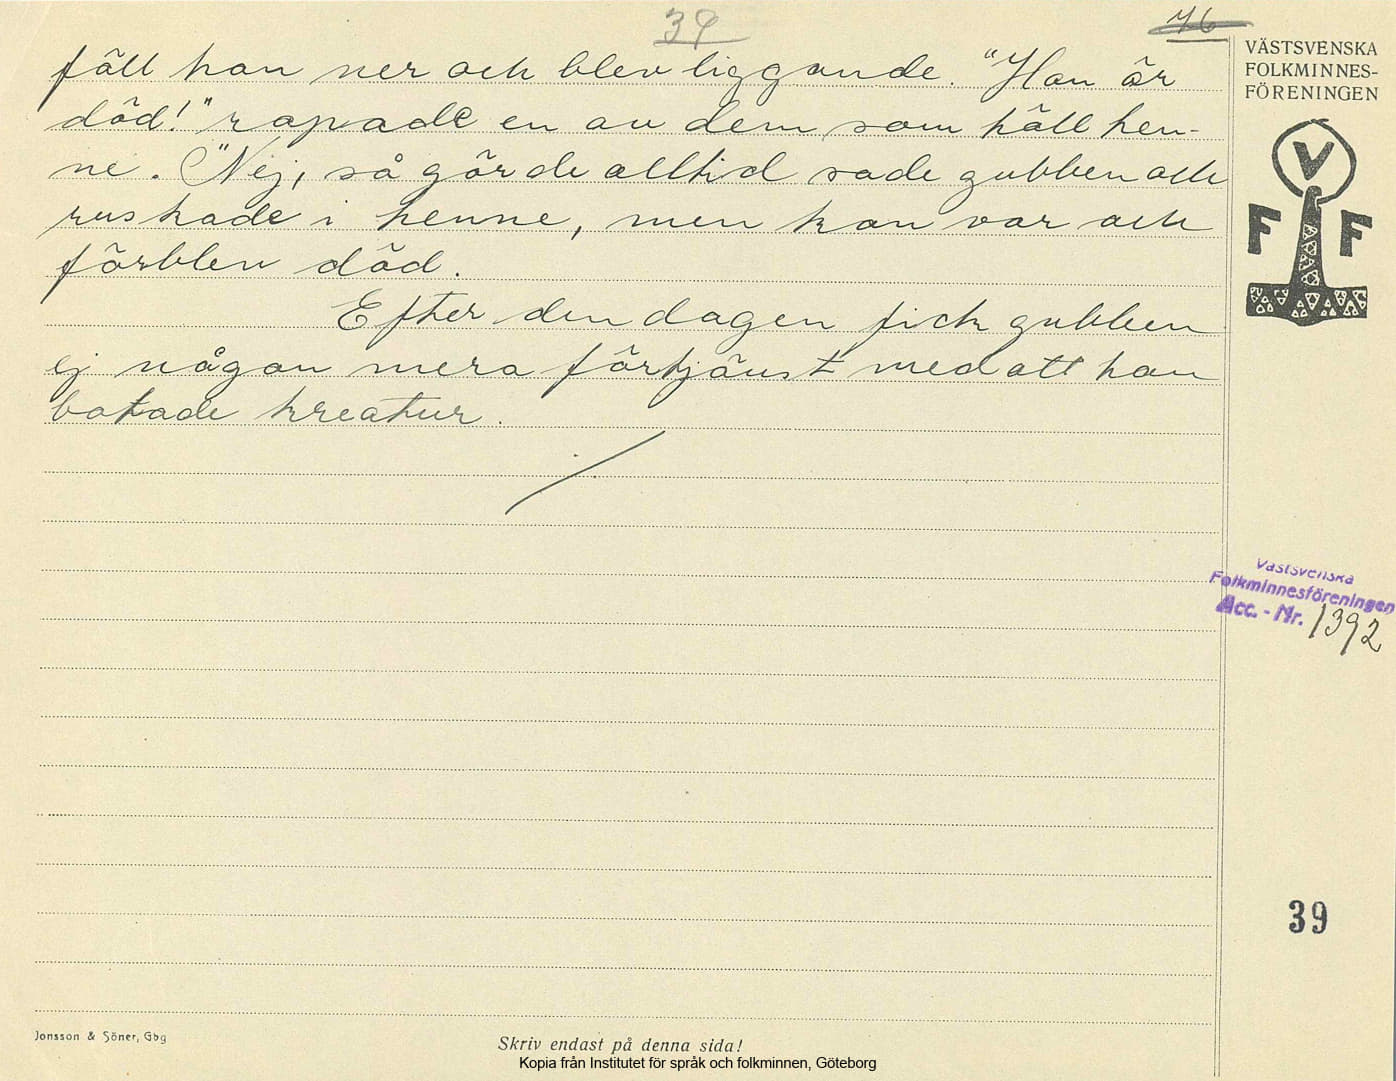 39
76
fäll han ner och blev liggande. "Han är
död!" ropade en av dem som höll hen-
ne. "Nej, så gör de alltid sade gubben och
ruskade i henne, men kon var och
förblev död.
Efter den dagen fick gubben
ej någon mera förtjänst med att han
botade kreatur.
VÄSTSVENSKA
FOLKMINNES-
FÖRENINGEN
V
F F
Västsvenska
Folkminnesföreningen
Acc. - Nr. 1392
39
Jonsson & Söner, Gbg
Skriv endast på denna sida!
Kopia från Institutet för språk och folkminnen, Göteborg